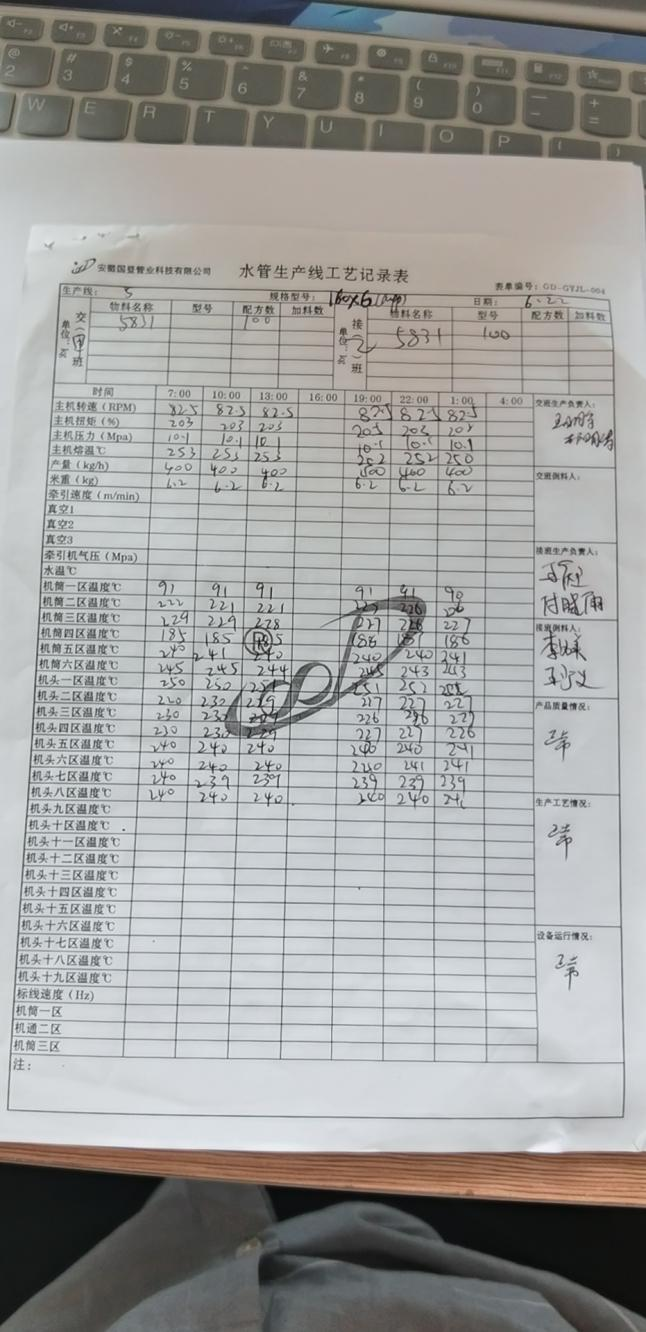 @ # $ % ^ & * ( ) — +
2 3 4 5 6 7 8 9 0 - =
W E R T Y U I O P
安徽国登管业科技有限公司
水管生产线工艺记录表
表单编号：GD-GYJL-004
生产线： 5 规格型号： 160X6 日期： 6.22
交（甲）班 单位：kg 物料名称 型号 配方数 加料数 接（乙）班 单位：kg 物料名称 型号 配方数 加料数
5831 100 5831 100
时间 7:00 10:00 13:00 16:00 19:00 22:00 1:00 4:00
主机转速（RPM） 82.5 82.5 82.5 82.5 82.5 82.5
主机扭矩（%） 203 203 203 203 203 203
主机压力（Mpa） 10.1 10.1 10.1 10.1 10.1 10.1
主机熔温℃ 253 253 253 252 252 250
产量（kg/h） 400 400 400 400 400 400
米重（kg） 6.2 6.2 6.2 6.2 6.2 6.2
牵引速度（m/min）
真空1
真空2
真空3
牵引机气压（Mpa）
水温℃
机筒一区温度℃ 91 91 91 91 91 90
机筒二区温度℃ 222 221 221 227 226 226
机筒三区温度℃ 229 229 228 227 228 227
机筒四区温度℃ 185 185 185 186 187 186
机筒五区温度℃ 240 241 240 240 240 241
机筒六区温度℃ 245 245 244 245 243 243
机头一区温度℃ 250 250 251 251 252
机头二区温度℃ 220 230 229 227 227 227
机头三区温度℃ 230 230 226 226 227
机头四区温度℃ 230 230 229 227 227 226
机头五区温度℃ 240 240 240 240 240 241
机头六区温度℃ 240 240 240 241 241
机头七区温度℃ 240 239 239 239 239 239
机头八区温度℃ 240 240 240 240 240 241
机头九区温度℃
机头十区温度℃
机头十一区温度℃
机头十二区温度℃
机头十三区温度℃
机头十四区温度℃
机头十五区温度℃
机头十六区温度℃
机头十七区温度℃
机头十八区温度℃
机头十九区温度℃
标线速度（Hz）
机筒一区
机通二区
机筒三区
注：
交班生产负责人：
交班倒料人：
接班生产负责人：
接班倒料人：
产品质量情况：
正常
生产工艺情况：
正常
设备运行情况：
正常